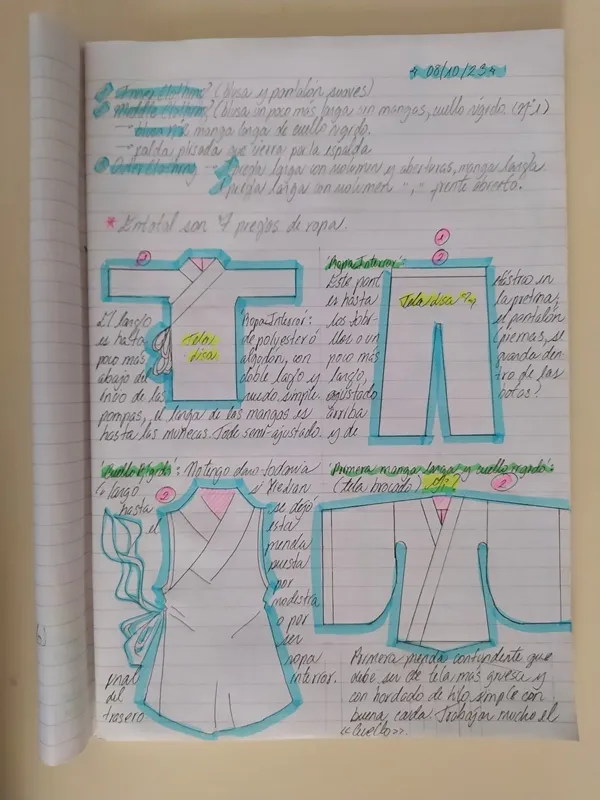 08/10/23
Inner clothing? (blusa y pantalón suaves)
Middle clothing? (blusa un poco más larga sin mangas, cuello rígido. (nº1)
→ blusa manga larga de cuello rígido.
→ falda plisada que cierra por la espalda
Outer clothing → prenda larga con volumen y aberturas, manga larga
prenda larga con volumen " , " frente abierto.
* En total son 7 prendas de ropa.
1
El largo
es hasta
poco más
abajo del
inicio de las
pompas, el largo de las mangas es
hasta las muñecas. Todo semi-ajustado.
Tela
lisa
Ropa Interior:
de polyester o
algodón, con
doble lazo y
nudo simple.
1
2
Ropa Interior:
Este pant
es hasta
los tobi-
llos o un
poco más
largo,
ajustado
arriba
y de
Tela lisa
elástico en
la pretina,
el pantalón
(piernas, se
guarda den
tro de las
botas)
Cuello Rígido: No tengo claro todavía
si
2
largo
hasta
el
final
del
trasero
se dejó
esta
prenda
puesta
por
modestia
o por
ser
ropa
interior.
Primera manga larga y cuello rígido:
(tela brocado)
2
Primera prenda contundente que
debe ser de tela más gruesa y
con bordado de hilo simple con
buena caída. Trabajar mucho el
<<cuello>>.